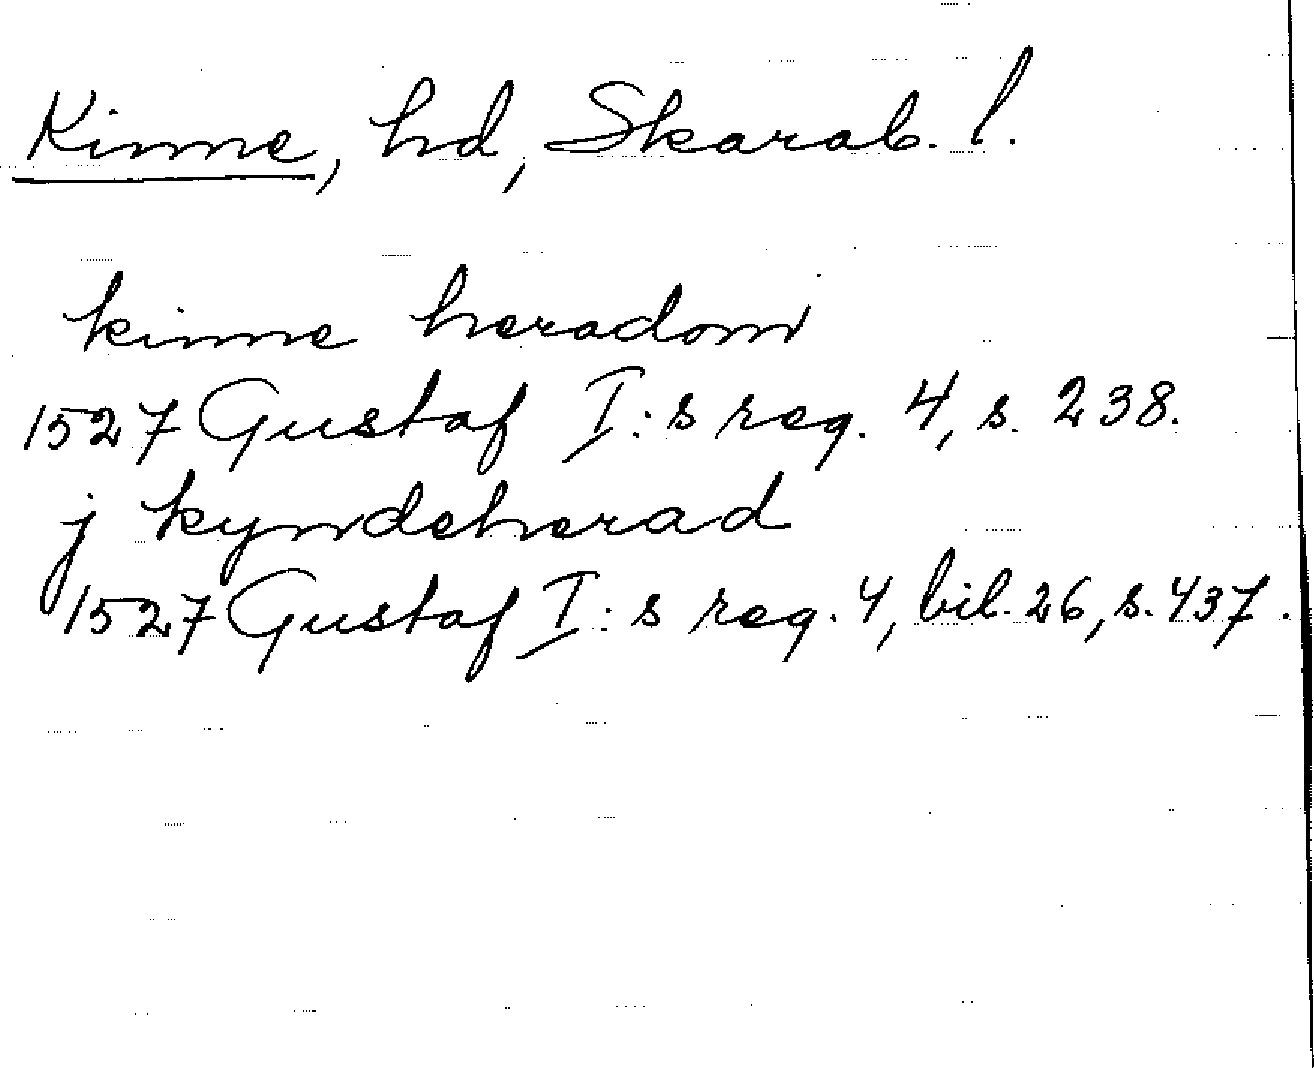 Kinne, hd, Skarab. l.
kinne heradom
1527 Gustaf I:s reg. 4, s. 238.
j kyndeherad
1527 Gustaf I:s reg. 4, bil. 26, s. 437.